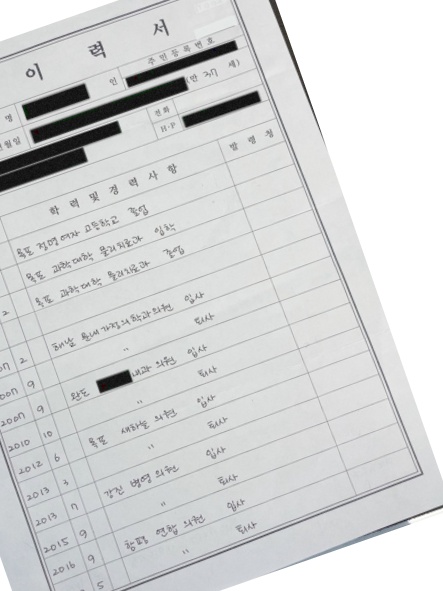 이 력 서
명 인 주민등록번호
월일 (만 37 세)
전화
H·P
학 력 및 경 력 사 항 발 령 청
목포 정명여자 고등학교 졸업
목포 과학대학 물리치료과 입학
2 목포 과학대학 물리치료과 졸업
2 해남 가정의학과의원 입사
9 〃 퇴사
2007 9 완도 내과 의원 입사
2010 10 〃 퇴사
2012 6 목포 새하늘 의원 입사
2013 3 〃 퇴사
2013 7 강진 병영 의원 입사
2015 9 〃 퇴사
2016 9 함평 연합 의원 입사
5 〃 퇴사